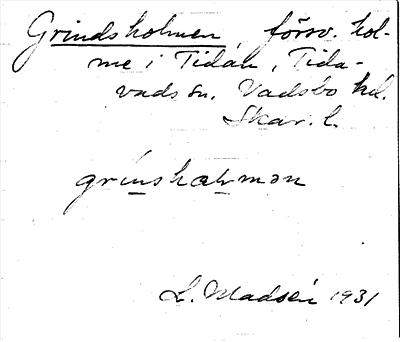 Grindsholmen, försv. hol-
me i Tidan, Tida-
vads sn. Vadsbo hd.
Skar. l.
grinshalmən
L. Madsén 1931